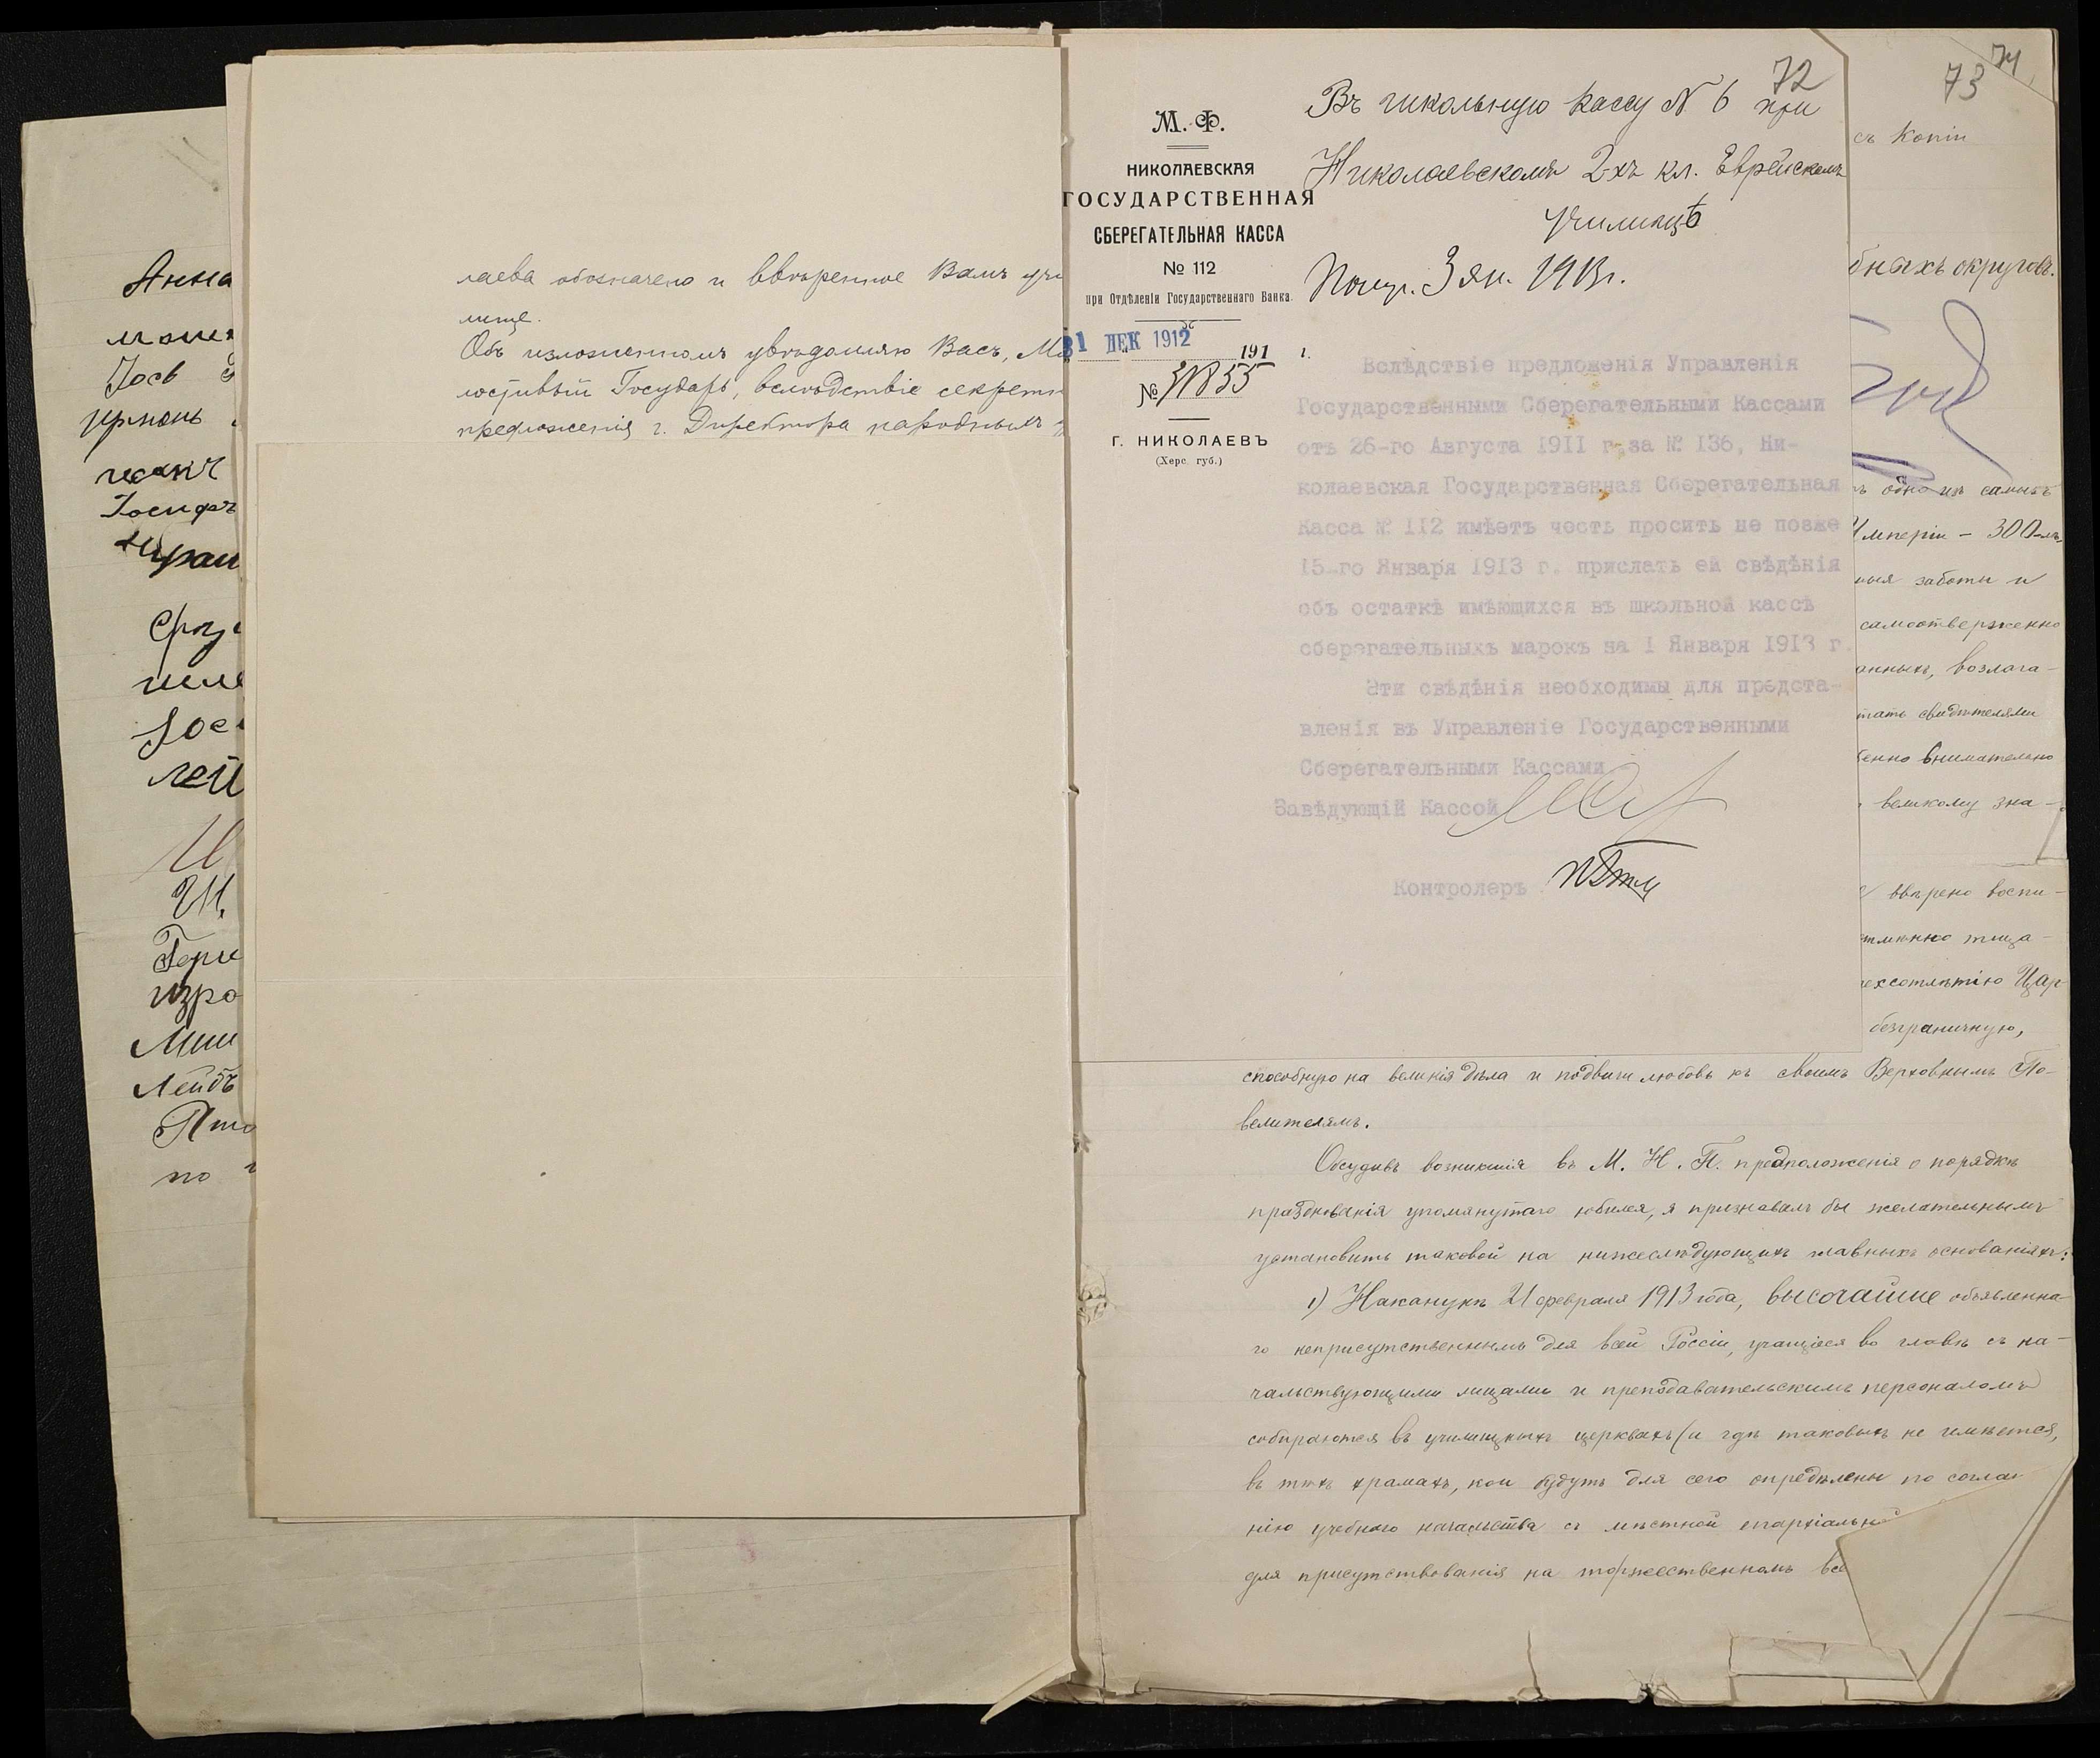 Анна
Іосъ
Іосифъ
лаева обозначено и ввѣренное Вамъ учи
лище.
Объ изложенномъ увѣдомляю Васъ, Ми
лостивый Государь, вслѣдствіе секретн
предложенія г. Директора народныхъ
М. Ф.
НИКОЛАЕВСКАЯ
ГОСУДАРСТВЕННАЯ
СБЕРЕГАТЕЛЬНАЯ КАССА
№ 112
при Отдѣленіи Государственнаго Банка.
31 ДЕК 1912
191 г.
№ 31855
Г. НИКОЛАЕВЪ
(Херс. губ.)
72
Въ школьную кассу N 6 при
Николаевскомъ 2-хъ кл. Еврейскомъ
училищѣ
Получ. 3 Ян. 1913 г.
Вслѣдствіе предложенія Управленія
Государственными Сберегательными Кассами
отъ 26-го Августа 1911 г. за № 136, Ни-
колаевская Государственная Сберегательная
Касса № 112 имѣетъ честь просить не позже
15-го Января 1913 г. прислать ей свѣдѣнія
объ остаткѣ имѣющихся въ школьной кассѣ
сберегательныхъ марокъ на 1 Января 1913 г.
Эти свѣдѣнія необходимы для предста-
вленія въ Управленіе Государственными
Сберегательными Кассами
Завѣдующій Кассой
Контролеръ
73
74
съ копіи
бныхъ округовъ.
одно изъ самыхъ
Имперіи - 300-лѣ
ныя заботы и
самоотверженно
анныхъ, возлага-
тать свидѣтелями
енно внимательно
великому зна-
ввѣрено воспи-
тща-
ехсотлѣтію Цар-
безграничную,
способную на великія дѣла и подвиги любовь къ своимъ Верховнымъ По-
велителямъ.
Обсудивъ возникшія въ М. Н. П. предположенія о порядкѣ
празднованія упомянутаго юбилея, я признавалъ бы желательнымъ
установить таковой на нижеслѣдующихъ главныхъ основаніяхъ:
1) Наканунѣ 21 февраля 1913 года, высочайше объявленна-
го неприсутственнымъ для всей Россіи, учащіеся во главѣ съ на-
чальствующими лицами и преподавательскимъ персоналомъ
собираются въ училищныхъ церквахъ (и гдѣ таковыхъ не имѣется,
въ тѣхъ храмахъ, кои будутъ для сего опредѣлены по согла
нію учебнаго начальства съ мѣстной епархіальной
для присутствованія на торжественномъ все